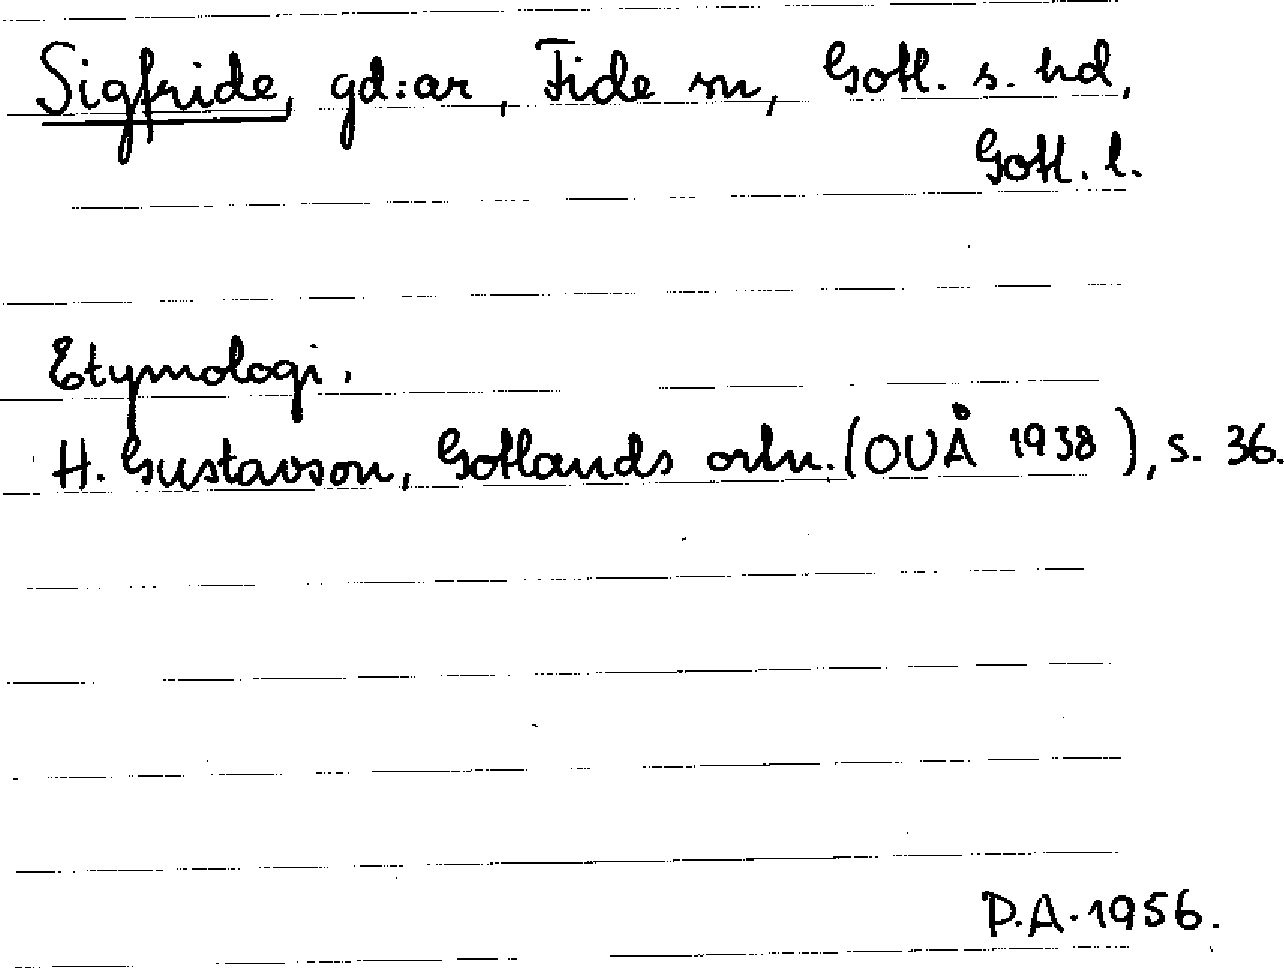 Sigfride, gd:ar, Fide sn, Gotl. s. hd,
Gotl. l.
Etymologi.
H. Gustavson, Gotlands ortn. (OUÅ 1938), s. 36.
P.A. 1956.